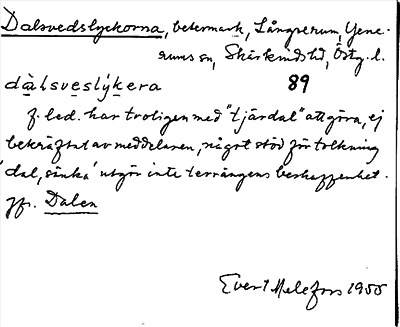 Dalsvedslyckorna, betesmark, Långserum, Yene-
rums sn, Skärkinds hd, Östg. l.
dàlsveslýkera 89
f. led. har troligen med "tjärdal" att göra, ej
bekräftat av meddelaren, något stöd för tolkning
'dal, sänka' utgör inte terrängens beskaffenhet.
jfr. Dalen
Evert Melefors 1955